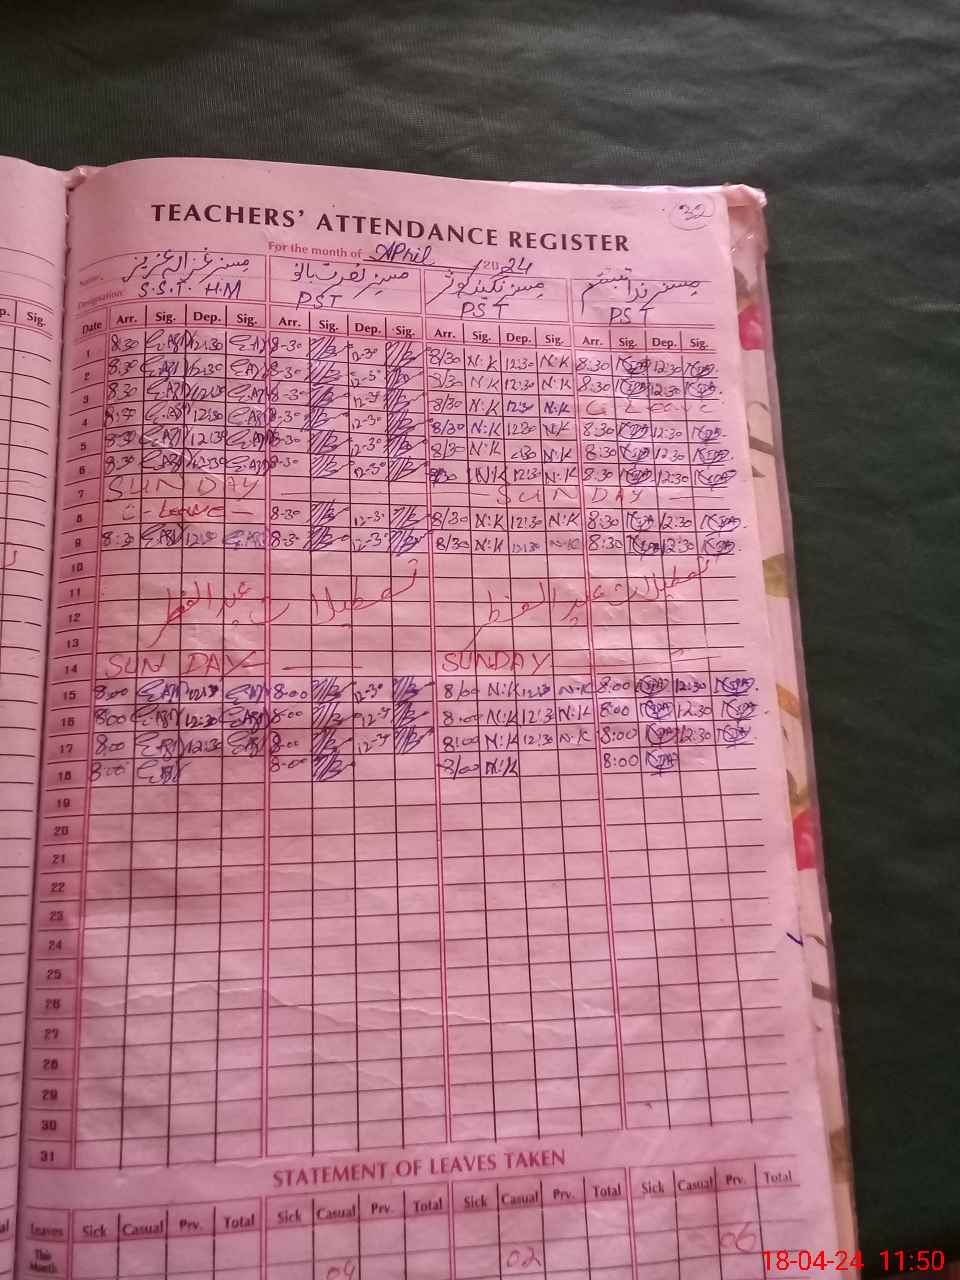 32
TEACHERS' ATTENDANCE REGISTER
For the month of April / 2024
Name: مسز غزالہ عزیز مسز نصرت بانو مسز نگینہ کوثر مسز ندا تبسم
Designation: S.S.T. H.M PST PST PST
Date Arr. Sig. Dep. Sig. Arr. Sig. Dep. Sig. Arr. Sig. Dep. Sig. Arr. Sig. Dep. Sig.
1 8:30 12:30 8-30 12-30 8/30 N:K 12:30 N:K 8:30 12:30
2 8:30 12:30 8-30 12-30 8/30 N:K 12:30 N:K 8:30 12:30
3 8:30 12:30 8-30 12-30 8/30 N:K 12:30 N:K C-Leave
4 8:30 12:30 8-30 12-30 8/30 N:K 12:30 N:K 8:30 12:30
5 8:30 12:30 8-30 12-30 8/30 N:K 12:30 N:K 8:30 12:30
6 8:30 12:30 8-30 12-30 8/30 N:K 12:30 N:K 8:30 12:30
7 SUNDAY SUNDAY
8 C-Leave 8-30 12-30 8/30 N:K 12:30 N:K 8:30 12:30
9 8:30 12:30 8-30 12-30 8/30 N:K 12:30 N:K 8:30 12:30
10
11 تعطیلات عید الفطر تعطیلات عید الفطر
12
13
14 SUNDAY SUNDAY
15 8:00 12:30 8-00 12-30 8/00 N:K 12:30 N:K 8:00 12:30
16 8:00 12:30 8-00 12-30 8:00 N:K 12:30 N:K 8:00 12:30
17 8:00 12:30 8-00 12-30 8:00 N:K 12:30 N:K 8:00 12:30
18 8:00 8-00 8/00 N:K 8:00
19
20
21
22
23
24
25
26
27
28
29
30
31
STATEMENT OF LEAVES TAKEN
Leaves Sick Casual Prv. Total Sick Casual Prv. Total Sick Casual Prv. Total Sick Casual Prv. Total
This Month 04 02 06
p. Sig.
18-04-24 11:50